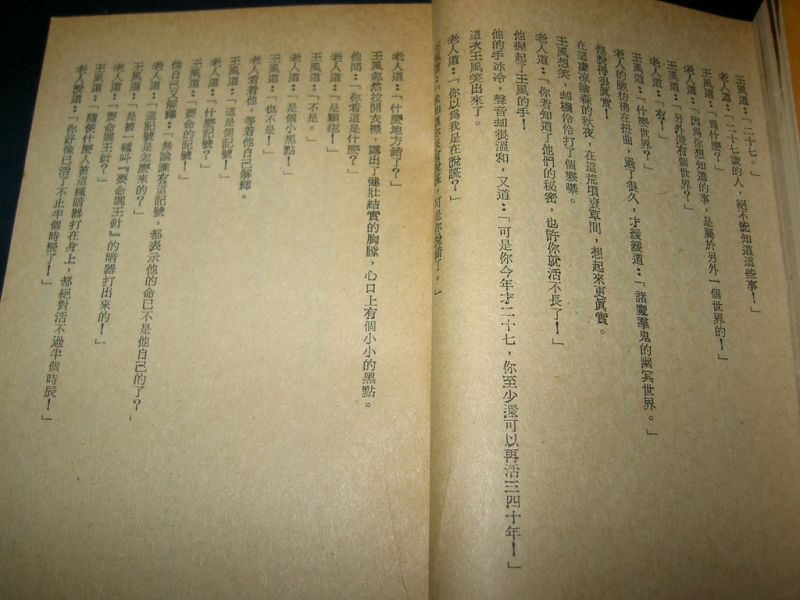 王風道：「二十七。」
老人道：「二十七歲的人，絕不能知道這些事！」
王風道：「爲什麽？」
老人道：「因爲你想知道的事，是屬於另外一個世界的！」
王風道：「另外還有個世界？」
老人道：「有！」
王風道：「什麽世界？」
老人的臉彷彿在扭曲，過了很久，才緩緩道：「諸魔羣鬼的幽冥世界。」
他說得很眞實！
在這淒凉陰森的秋夜，在這荒墳衰草間，想起來更眞實。
王風想笑，却機伶伶打了個寒噤。
老人道：「你若知道了他們的秘密，也許你就活不長了！」
他握起了王風的手！
他的手冰冷，聲音却很溫和，又道：「可是你今年才二十七，你至少還可以再活三四十年！」
這次王風笑出來了。
老人道：「你以爲我是在說謊？」
王風道：
老人道：「什麽地方錯了？」
王風忽然拉開衣襟，露出了健壯結實的胸膛，心口上有個小小的黑點。
他問：「你看這是什麽？」
老人道：「是顆痣！」
王風道：「不是。」
老人道：「是個小黑點！」
王風道：「也不是！」
老人看着他，等着他自己解釋。
王風道：「這是個記號！」
老人道：「什麽記號？」
王風道：「要命的記號！」
他自己又解釋：「無論誰有這記號，都表示他的命已不是他自己的了？
老人道：「這記號是怎麽來的？」
王風道：「是被一種叫『要命閻王針』的暗器打出來的！」
老人道：「要命閻王針？」
王風道：「隨便什麽人被這種暗器打在身上，都絕對活不過半個時辰！」
老人說道：「你好像已活了不止半個時辰了！」